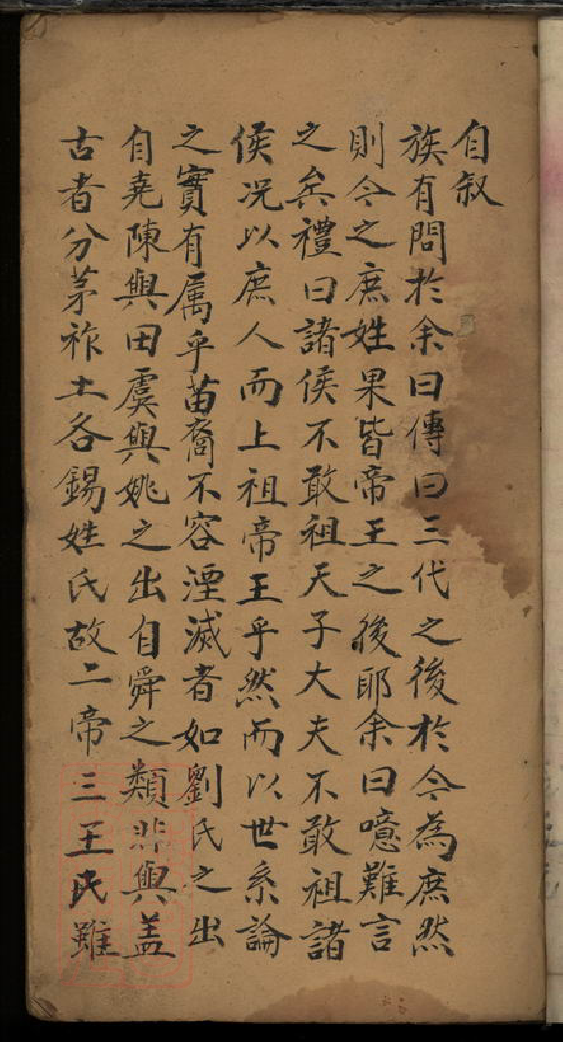 自叙
族有問於余曰傳曰三代之後於今為庶然
則今之庶姓果皆帝王之後耶余曰噫難言
之矣禮曰諸侯不敢祖天子大夫不敢祖諸
侯况以庶人而上祖帝王乎然而以世系論
之實有属乎苗裔不容湮滅者如劉氏之出
自堯陳與田虞與姚之出自舜之類非與盖
古者分茅祚土各錫姓氏故二帝三王氏雖